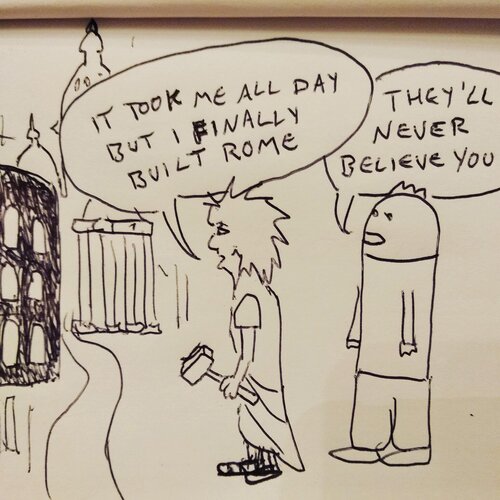 IT TOOK ME ALL DAY
BUT I FINALLY
BUILT ROME
THEY'LL
NEVER
BELIEVE YOU